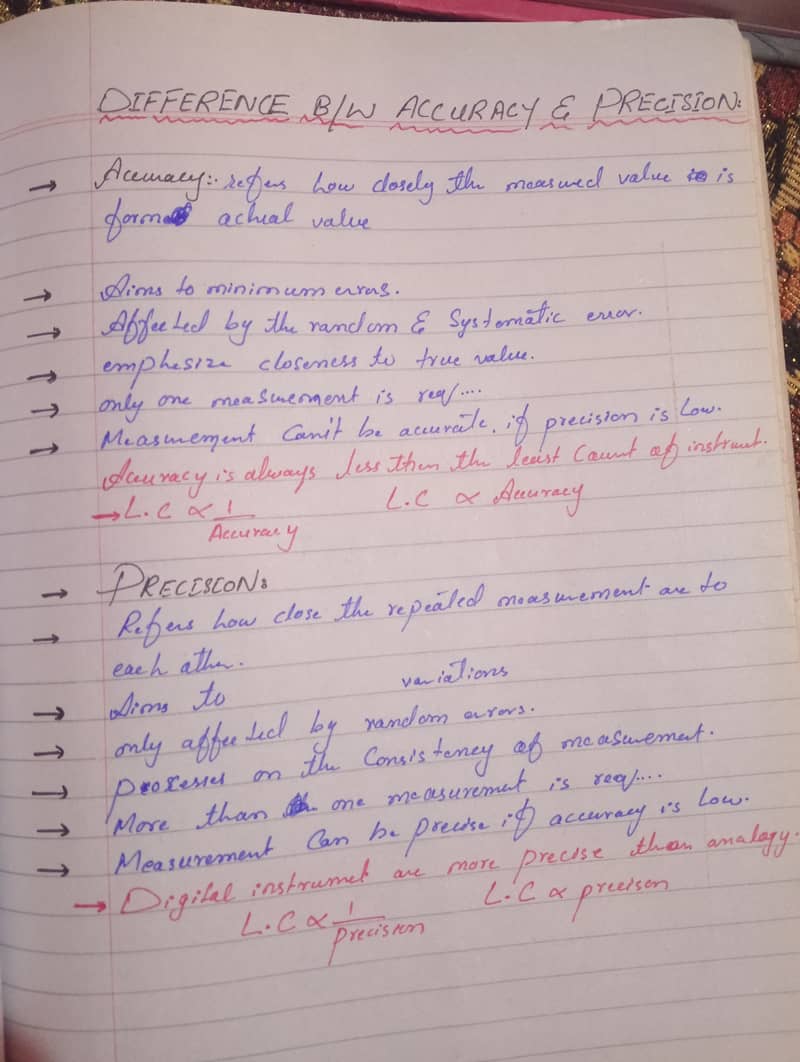 DIFFERENCE B/W ACCURACY & PRECISION:
→ Accuracy:- refers how closely the measured value is
form actual value
→ Aims to minimum errors.
→ Affected by the random & Systematic error.
→ emphesize closeness to true value.
→ only one measurement is req/....
→ Measurement Can't be accurate, if precision is Low.
Accuracy is always less then the least Count of instrument.
→ L.C ∝ 1/Accuracy L.C ∝ Accuracy
→ PRECISION:
→ Refers how close the repeated measurement are to
each other.
→ Aims to variations
→ only affected by random errors.
→ on the Consistency of measurement.
→ More than one measurement is req/....
→ Measurement Can be precise if accuracy is Low.
→ Digital instrumet are more precise than analogy.
L.C ∝ 1/precision L.C ∝ precison